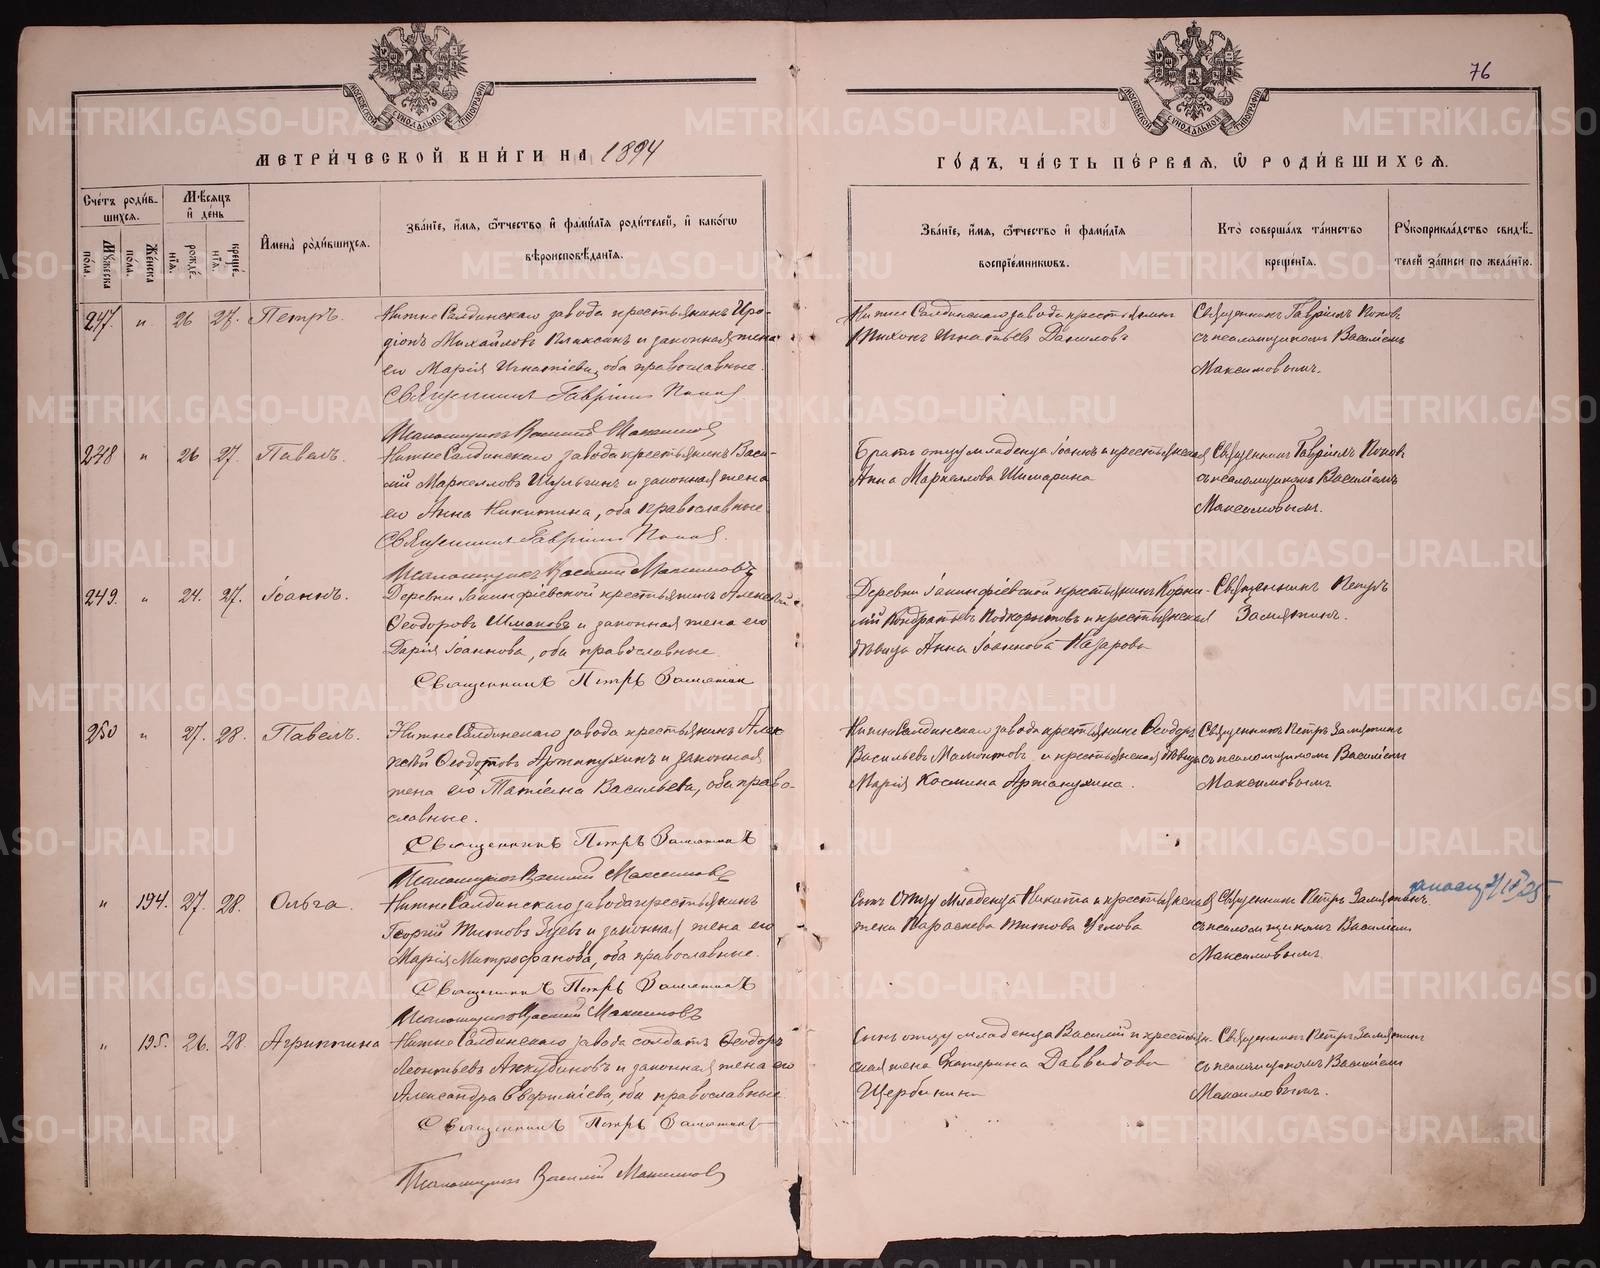 76
МЕТРИ́ЧЕСКОЙ КНИ́ГИ НА 1894
ГО́ДЪ, ЧА́СТЬ ПЕ́РВАЯ, Ѽ РОДИ́ВШИХСЯ.
Сче́тъ роди́в-
шихся.
Мꙋжеска пола.
Же́нска пола.
Мѣ́сяцъ
и҆ де́нь
рожде́-
нїя.
креще́-
нїя.
И҆мена̀ роди́вшихся.
Зва́нїе, и҆́мя, ѻ҆́тчество и҆ фами́лїя роди́телей, и҆ како́гѡ
вѣроисповѣ́данїя.
Зва́нїе, и҆́мя, ѻ҆́тчество и҆ фами́лїя
воспрїе́мникѡвъ.
Кто̀ соверша́лъ та́инство
креще́нїя.
Рꙋкоприкла́дство свидѣ́-
телей за́писи по жела́нїю.
247. " 26 27. Петръ.
Нижне Салдинскаго завода крестьянинъ Иро-
діонъ Михайловъ и законная жена
его Марія Игнатіева, оба православные.
Священникъ Гавріилъ Попов
Псаломщикъ Василій Максимов
Нижне Салдинскаго завода крестьянин
Тихонъ Игнатьев Даниловъ
Священникъ Гавріилъ Попов
съ псаломщикомъ Василіемъ
Максимовымъ.
248 " 26 27. Павелъ.
Нижне Салдинскаго завода крестьянинъ Васи-
лій Маркеллов Шульгин и законная жена
его Анна Никитина, оба православные
Священникъ Гавріилъ Попов.
Псаломщикъ Василій Максимовъ
Братъ отцу младенца Іоаннъ и крестьянская
Анна Маркеллова Шимарина
Священникъ Гавріилъ Попов
съ псаломщикомъ Василіемъ
Максимовымъ.
249. " 24. 27. Іоаннъ.
Деревни Іакинфіевской крестьянинъ Алексѣй
Ѳеодоровъ Шмаковъ и законная жена его
Дарія Іоаннова, оба православные
Священникъ Петръ Замятин
Деревни Іакинфіевской крестьянинъ Корни-
лій Кондратьевъ Подкорытовъ и крестьянская
дѣвица Анна Іоаннова Назарова
Священникъ Петръ
Замятинъ.
250 " 27. 28. Павелъ.
Нижне Салдинскаго завода крестьянинъ Алек-
сѣй Ѳеодотовъ и законная
жена его Татіана Васильева, оба право-
славные.
Священникъ Петръ Замятинъ
Псаломщикъ Василій Максимовъ
Нижне Салдинскаго завода крестьянинъ Ѳеодоръ
Васильевъ Мамонтовъ и крестьянская дѣвица
Марія Космина
Священникъ Петръ Замятинъ
съ псаломщикомъ Василіемъ
Максимовымъ
" 194. 27. 28. Ольга.
Нижне Салдинскаго завода крестьянинъ
Георгій Титовъ Зуевъ и законная жена его
Марія Митрофанова, оба православные.
Священникъ Петръ Замятинъ
Псаломщикъ Василій Максимовъ
Сынъ отцу младенца Никита и крестьянская
жена Параскева Титова
Священникъ Петръ Замятинъ
съ псаломщикомъ Василіемъ
Максимовымъ.
" 195. 26. 28. Агриппина
Нижне Салдинскаго завода солдатъ Ѳеодоръ
Леонтьевъ и законная жена его
Александра оба православные
Священникъ Петръ Замятинъ
Псаломщикъ Василій Максимовъ
Сынъ отцу младенца Василій и крестьян-
ская жена Екатерина Даввидова
Щербинина
Священникъ Петръ Замятинъ
съ псаломщикомъ Василіемъ
Максимовымъ.
METRIKI.GASO-URAL.RU